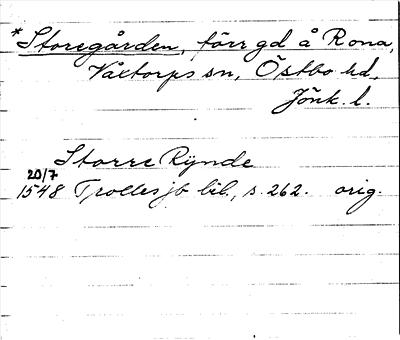 *Storegården, förr gd å Rona,
Våtorps sn, Östbo hd,
Jönk. l.
Storre Rynde
20/7
1548 Trolles jb bil., s. 262. orig.